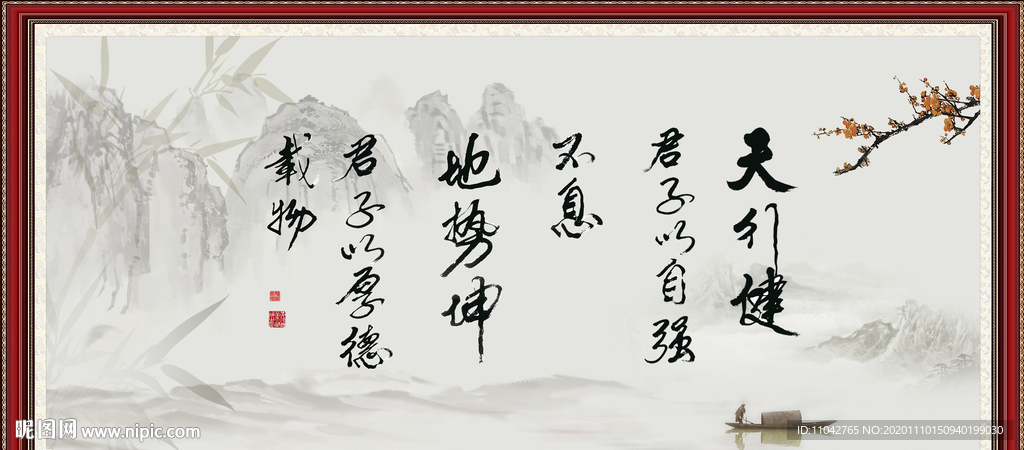 天行健
君子以自强
不息
地势坤
君子以厚德
载物
昵图网 www.nipic.com
ID:11042765 NO:20201110150940199030